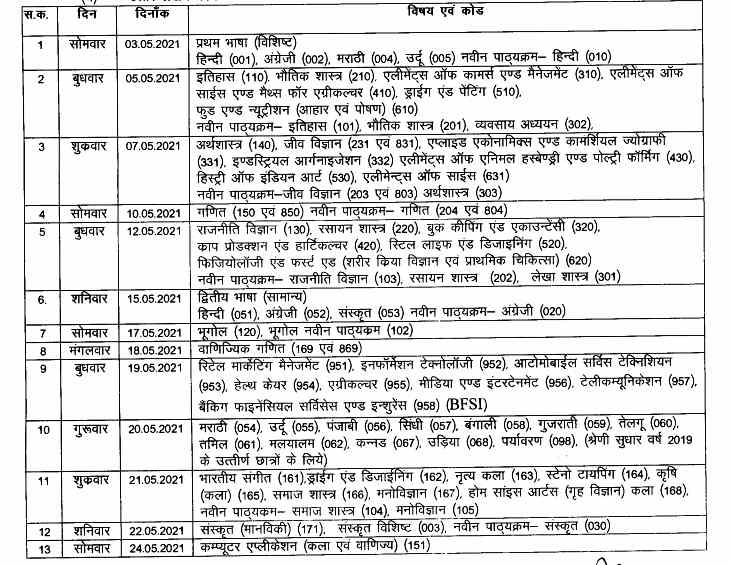 स.क. दिन दिनाँक विषय एवं कोड
1 सोमवार 03.05.2021 प्रथम भाषा (विशिष्ट)
हिन्दी (001), अंग्रेजी (002), मराठी (004), उर्दू (005) नवीन पाठ्यक्रम– हिन्दी (010)
2 बुधवार 05.05.2021 इतिहास (110), भौतिक शास्त्र (210), एलीमेंट्स ऑफ कामर्स एण्ड मैनेजमेंट (310), एलीमेंट्स ऑफ
साईस एण्ड मैथ्स फॉर एग्रीकल्चर (410), ड्राईग एंड पेंटिंग (510),
फुड एण्ड न्यूट्रीशन (आहार एवं पोषण) (610)
नवीन पाठ्यक्रम– इतिहास (101), भौतिक शास्त्र (201), व्यवसाय अध्ययन (302),
3 शुक्रवार 07.05.2021 अर्थशास्त्र (140), जीव विज्ञान (231 एवं 831), एप्लाइड एकोनामिक्स एण्ड कामर्शियल ज्योग्राफी
(331), इण्डस्ट्रियल आर्गनाइजेशन (332) एलीमेंट्स ऑफ एनिमल हस्बेण्ड्री एण्ड पोल्ट्री फॉर्मिंग (430),
हिस्ट्री ऑफ इंडियन आर्ट (530), एलीमेन्ट्स ऑफ साईस (631)
नवीन पाठ्यक्रम–जीव विज्ञान (203 एवं 803) अर्थशास्त्र (303)
4 सोमवार 10.05.2021 गणित (150 एवं 850) नवीन पाठ्यक्रम– गणित (204 एवं 804)
5 बुधवार 12.05.2021 राजनीति विज्ञान (130), रसायन शास्त्र (220), बुक कीपिंग एंड एकाउन्टेंसी (320),
क्राप प्रोडक्शन एंड हार्टिकल्चर (420), स्टिल लाइफ एंड डिजाइनिंग (520),
फिजियोलॉजी एंड फर्स्ट एड (शरीर किया विज्ञान एवं प्राथमिक चिकित्सा) (620)
नवीन पाठ्यक्रम– राजनीति विज्ञान (103), रसायन शास्त्र (202), लेखा शास्त्र (301)
6. शनिवार 15.05.2021 द्वितीय भाषा (सामान्य)
हिन्दी (051), अंग्रेजी (052), संस्कृत (053) नवीन पाठ्यकम– अंग्रेजी (020)
7 सोमवार 17.05.2021 भूगोल (120), भूगोल नवीन पाठ्यक्रम (102)
8 मंगलवार 18.05.2021 वाणिज्यिक गणित (169 एवं 869)
9 बुधवार 19.05.2021 रिटेल मार्केटिंग मैनेजमेंट (951), इनफॉर्मेशन टेक्नोलॉजी (952), आटोमोबाईल सर्विस टेक्निशियन
(953), हेल्थ केयर (954), एग्रीकल्चर (955), मीडिया एण्ड इंटरटेनमेंट (956), टेलीकम्यूनिकेशन (957),
बैंकिग फाइनेंसियल सर्विसेस एण्ड इन्शुरेंस (958) (BFSI)
10 गुरूवार 20.05.2021 मराठी (054), उर्दू (055), पंजाबी (056), सिंधी (057), बंगाली (058), गुजराती (059), तेलगू (060),
तमिल (061), मलयालम (062), कन्नड (067), उड़िया (068), पर्यावरण (098), (श्रेणी सुधार वर्ष 2019
के उत्तीर्ण छात्रों के लिये)
11 शुक्रवार 21.05.2021 भारतीय संगीत (161),ड्राईंग एंड डिजाईनिंग (162), नृत्य कला (163), स्टेनो टायपिंग (164), कृषि
(कला) (165), समाज शास्त्र (166), मनोविज्ञान (167), होम सांइस आर्टस (गृह विज्ञान) कला (168),
नवीन पाठ्यकम– समाज शास्त्र (104), मनोविज्ञान (105)
12 शनिवार 22.05.2021 संस्कृत (मानविकी) (171), संस्कृत विशिष्ट (003), नवीन पाठ्यक्रम– संस्कृत (030)
13 सोमवार 24.05.2021 कम्प्यूटर एप्लीकेशन (कला एवं वाणिज्य) (151)